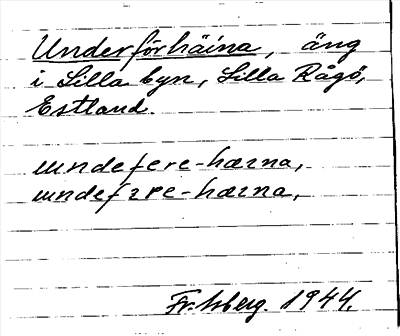 Underförhäina, äng
i Lilla byn, Lilla Rågö,
Estland.
undefere-hæɪna,
undefɪre-hæɪna,
Fr. Isberg. 1944.